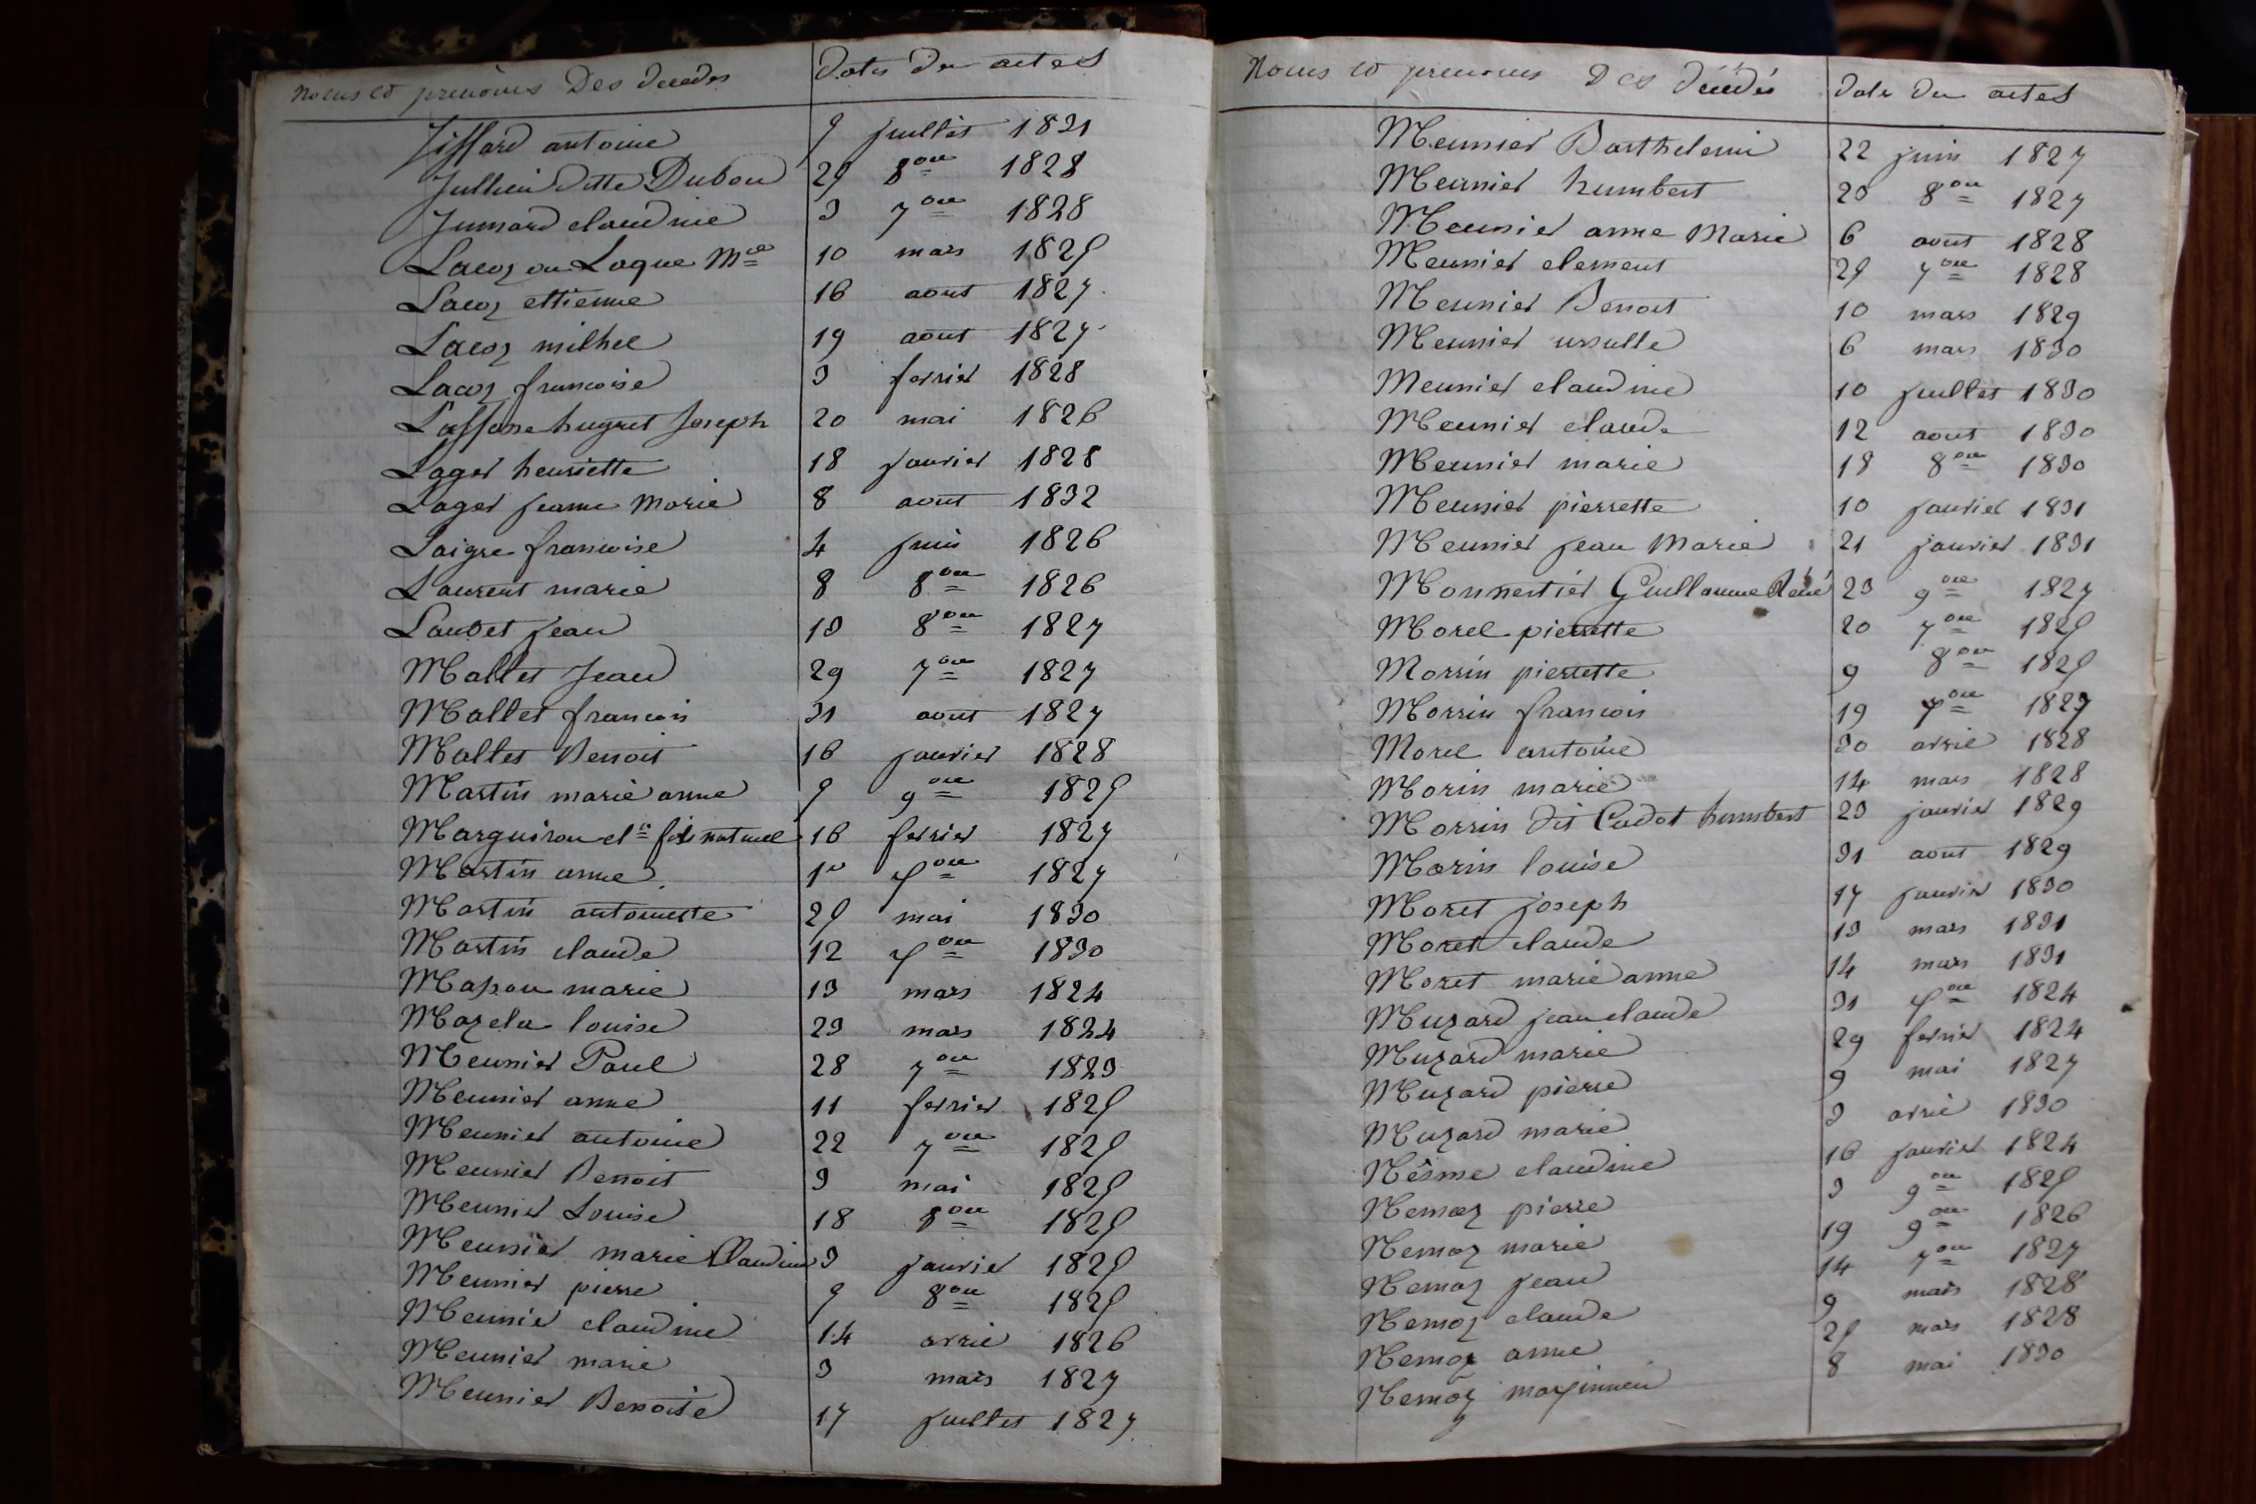 Noms et prenoms Des décédés Dates Des actes
Jiffard antoine 5 juillet 1831
Jullien ditte Dubou 25 8bre 1828
Jumard claudine 3 7bre 1828
Lacoz ou Loque Mie 10 mars 1825
Lacoz ettienne 16 aout 1827
Lacoz milhel 19 aout 1827
Lacoz francoise 3 fevrier 1828
Laffosse hugues Joseph 20 mai 1826
Lager henriette 18 janvier 1828
Lager jeanne Marie 8 aout 1832
Laigre francoise 4 juin 1826
Laurent marie 8 8bre 1826
Laudet jean 13 8bre 1827
Mallet Jean 29 7bre 1827
Mallet francois 31 aout 1827
Mallet Benoit 16 janvier 1828
Martin marie anne 5 9bre 1825
Marguiron cl.e fils naturel 16 fevrier 1827
Martin anne 1er Xbre 1827
Martin antoinette 25 mai 1830
Martin claude 12 Xbre 1830
Masson marie 13 mars 1824
Mazelu louise 23 mars 1824
Meunier Paul 28 7bre 1823
Meunier anne 11 fevrier 1825
Meunier antoine 22 7bre 1825
Meunier Benoit 3 mai 1825
Meunier Louise 18 8bre 1825
Meunier marie Claudine 3 janvier 1825
Meunier pierre 5 8bre 1825
Meunier claudine 14 avril 1826
Meunier marie 3 mars 1827
Meunier Benoite 17 juillet 1827
Noms et prenoms Des décédés Date Des actes
Meunier Barthelemi 22 juin 1827
Meunier humbert 20 8bre 1827
Meunier anne Marie 6 aout 1828
Meunier clement 25 7bre 1828
Meunier Benoit 10 mars 1829
Meunier ursulle 6 mars 1830
Meunier claudine 10 juillet 1830
Meunier claude 12 aout 1830
Meunier marie 18 8bre 1830
Meunier pierrette 10 janvier 1831
Meunier jean Marie 21 janvier 1831
Monnestier Guillaume René 23 9bre 1827
Morel pierrette 20 7bre 1825
Morrin pierrette 9 8bre 1825
Morrin francois 19 7bre 1827
Morel antoine 30 avril 1828
Morin marie 14 mars 1828
Morrin dit Cadot humbert 23 janvier 1829
Morin louise 31 aout 1829
Moret joseph 17 janvier 1830
Moret claude 13 mars 1831
Moret marie anne 14 mars 1831
Muzard jean claude 31 Xbre 1824
Muzard marie 29 fevrier 1824
Muzard pierre 9 mai 1827
Muzard marie 3 avril 1830
Nêsme claudine 16 janvier 1824
Nemoz pierre 3 9bre 1825
Nemoz marie 19 9bre 1826
Nemoz jean 14 7bre 1827
Nemoz claude 9 mars 1828
Nemoz anne 25 mars 1828
Nemoz maximien 8 mai 1830